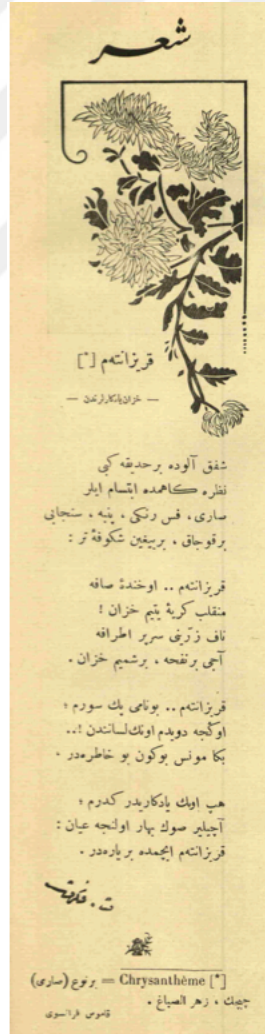 شعر
قريزانتەم [*]
— خزان يادكارلرندن —
شفق آلوده برحديقه كبى
نظره ‌كاهمده ابتسام ايلر
صارى ، فس رنكى ، پنبه ، سنجابى
برقوجاق ، برييغين شكوفۀ تر :
قريزانتەم .. اوخندۀ صافه
منقلب كريۀ يتيم خزان !
ناف زرّينى سرپر اطرافه
آجى برنفحه ، برشميم خزان .
قريزانتەم .. بونامى پك سورم ؛
اوڭجه دويدم اونك لسانندن !..
بكا مونس بوكون بو خاطره‌در .
هب اونك يادكاريدر كدرم ؛
آچيلير صوك بهار اولنجه عيان :
قريزانتەم ايچمده برياره‌در .
ت . فكرت
[*] Chrysanthème = برنوع (صارى)
چيچك ، زهر الصباغ .
قاموس فرانسوى